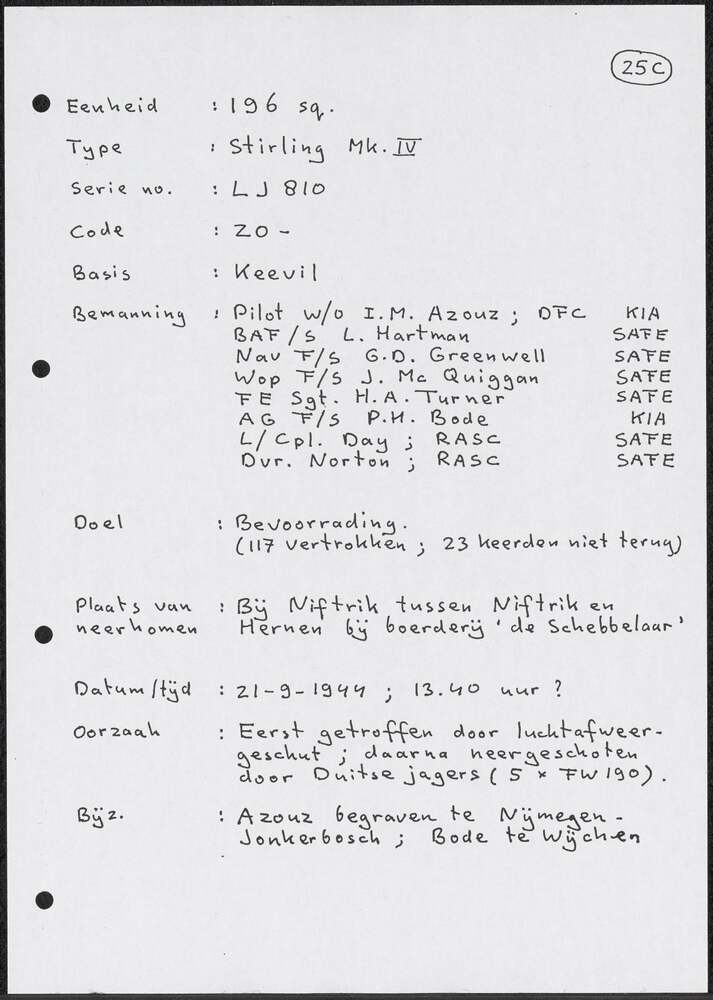 25C
Eenheid : 196 sq.
Type : Stirling Mk. IV
Serie no. : LJ 810
Code : ZO -
Basis : Keevil
Bemanning : Pilot W/O I.M. Azouz ; DFC KIA
BAF/S L. Hartman SAFE
Nav F/S G.D. Greenwell SAFE
Wop F/S J. Mc Quiggan SAFE
FE Sgt. H.A. Turner SAFE
AG F/S P.H. Bode KIA
L/Cpl. Day ; RASC SAFE
Dvr. Norton ; RASC SAFE
Doel : Bevoorrading.
(117 vertrokken ; 23 keerden niet terug)
Plaats van : Bij Niftrik tussen Niftrik en
neerkomen Hernen bij boerderij 'de Schebbelaar'
Datum/tijd : 21-9-1944 ; 13.40 uur ?
Oorzaak : Eerst getroffen door luchtafweer-
geschut ; daarna neergeschoten
door Duitse jagers (5 x FW 190).
Bijz. : Azouz begraven te Nijmegen-
Jonkerbosch ; Bode te Wijchen